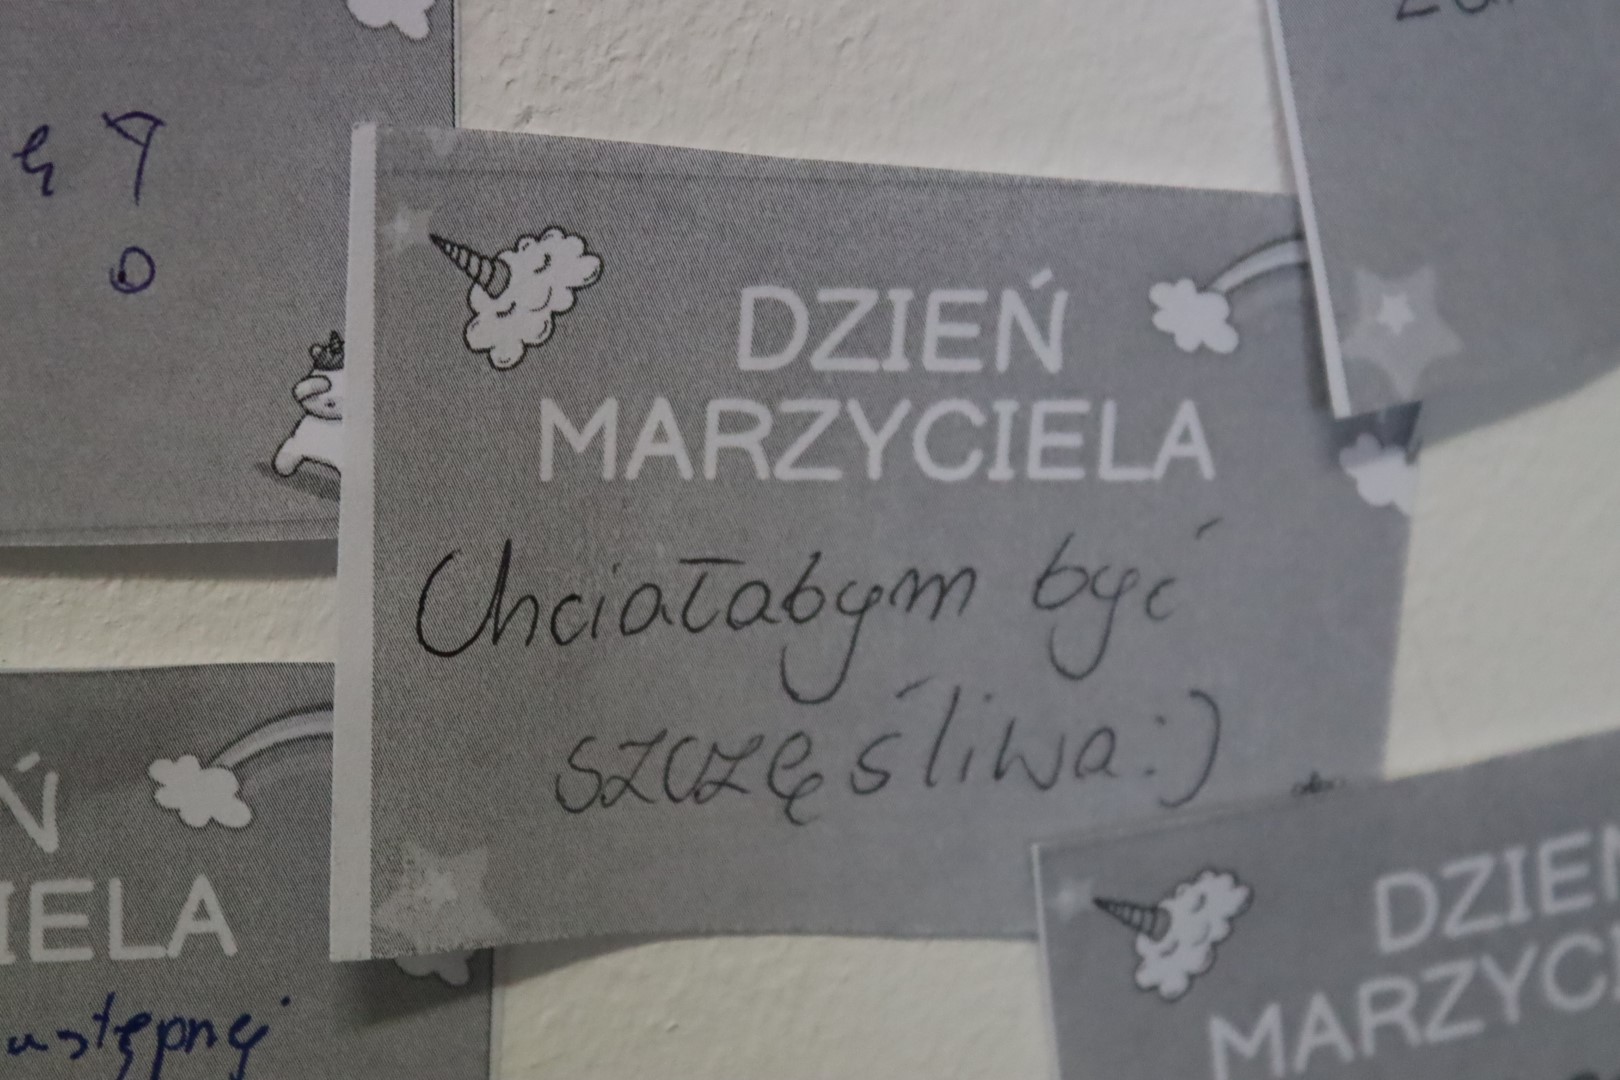 DZIEŃ
MARZYCIELA
Chciałabym być
szczęśliwa :)
Ń
IELA
DZIEŃ
MARZYCI